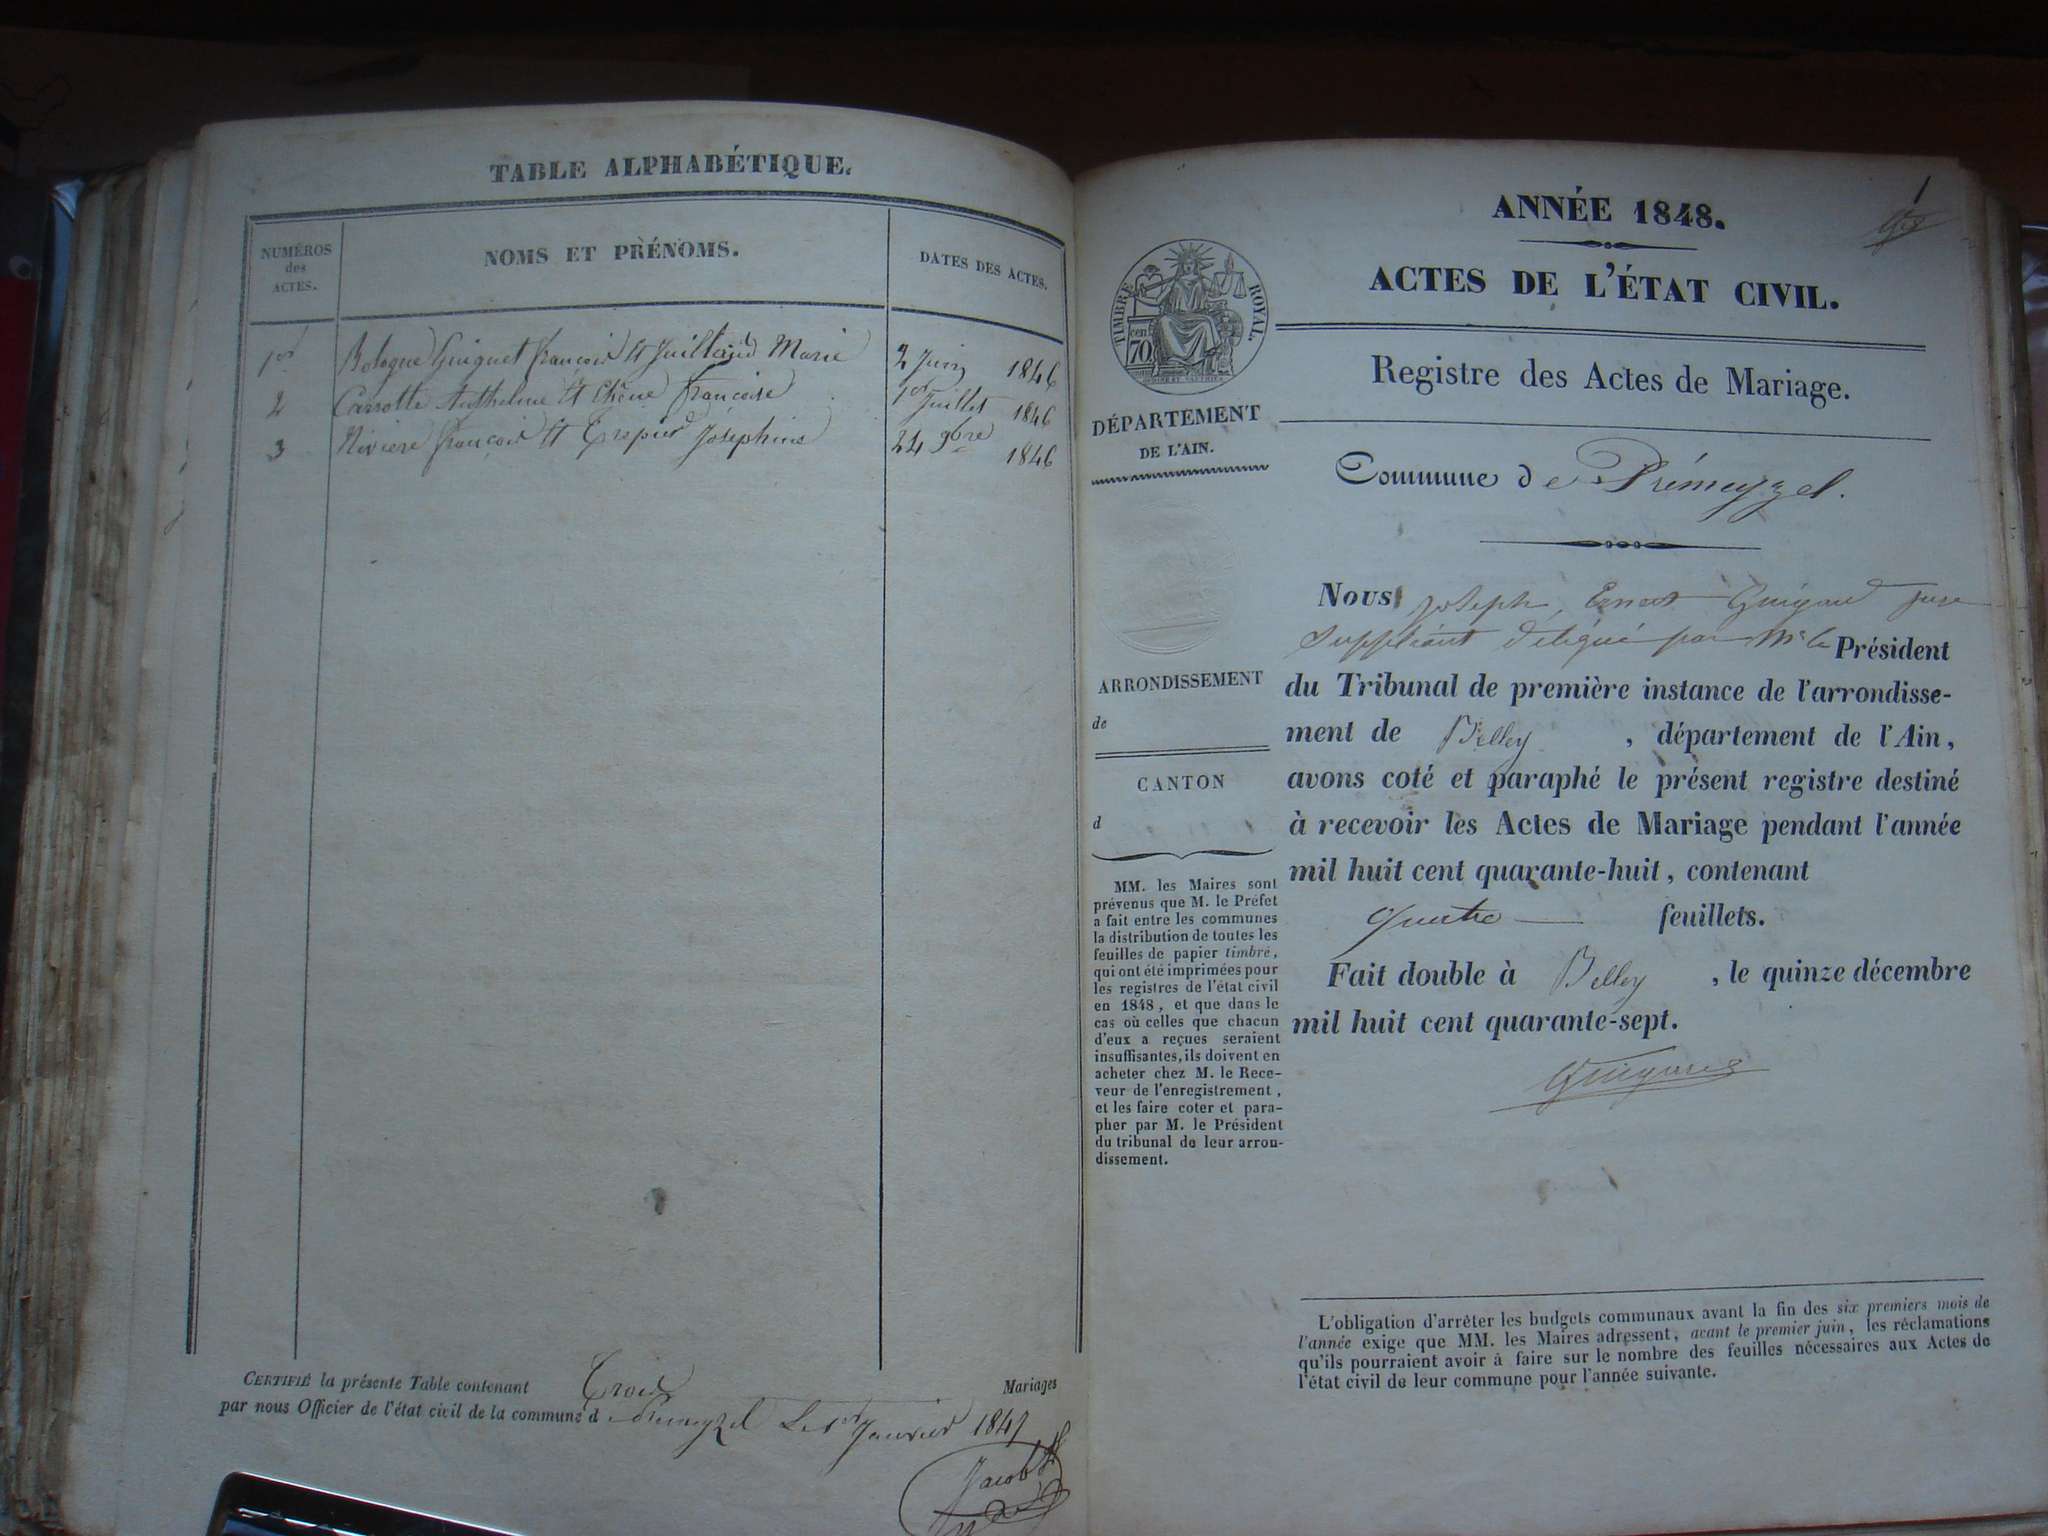 TABLE ALPHABÉTIQUE.
NUMÉROS
des
ACTES.
NOMS ET PRÉNOMS.
DATES DES ACTES.
1er Bologne Guiguet françois et Juilland Marie 2 Juin 1846
2 Carrotte Anthelme et Chêne françoise 1er Juillet 1846
3 Riviere françois et Josephine 24 9bre 1846
CERTIFIÉ la présente Table contenant Trois Mariages
par nous Officier de l'état civil de la commune de Premeyzel Le 1er Janvier 1847
Jacob
1
ANNÉE 1848.
ACTES DE L'ÉTAT CIVIL.
Registre des Actes de Mariage.
Commune de Prémeyzel.
TIMBRE ROYAL
cen.
70
DÉPARTEMENT
DE L'AIN.
ARRONDISSEMENT
de
CANTON
d
MM. les Maires sont
prévenus que M. le Préfet
a fait entre les communes
la distribution de toutes les
feuilles de papier timbré,
qui ont été imprimées pour
les registres de l'état civil
en 1848, et que dans le
cas où celles que chacun
d'eux a reçues seraient
insuffisantes, ils doivent en
acheter chez M. le Rece-
veur de l'enregistrement,
et les faire coter et para-
pher par M. le Président
du tribunal de leur arron-
dissement.
Nous Joseph, Ernest Guigard juge
suppléant délégué par Mr le Président
du Tribunal de première instance de l'arrondisse-
ment de Belley, département de l'Ain,
avons coté et paraphé le présent registre destiné
à recevoir les Actes de Mariage pendant l'année
mil huit cent quarante-huit, contenant
quatre feuillets.
Fait double à Belley, le quinze décembre
mil huit cent quarante-sept.
Guigard
L'obligation d'arrêter les budgets communaux avant la fin des six premiers mois de
l'année exige que MM. les Maires adressent, avant le premier juin, les réclamations
qu'ils pourraient avoir à faire sur le nombre des feuilles nécessaires aux Actes de
l'état civil de leur commune pour l'année suivante.